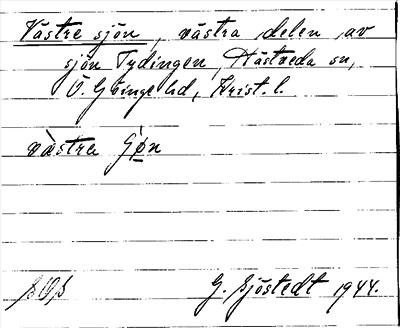 Västre sjön, västra delen av
sjön Tydingen, Hästveda sn,
Ö. Göinge hd, Krist. l.
västra
G. Sjöstedt 1944.